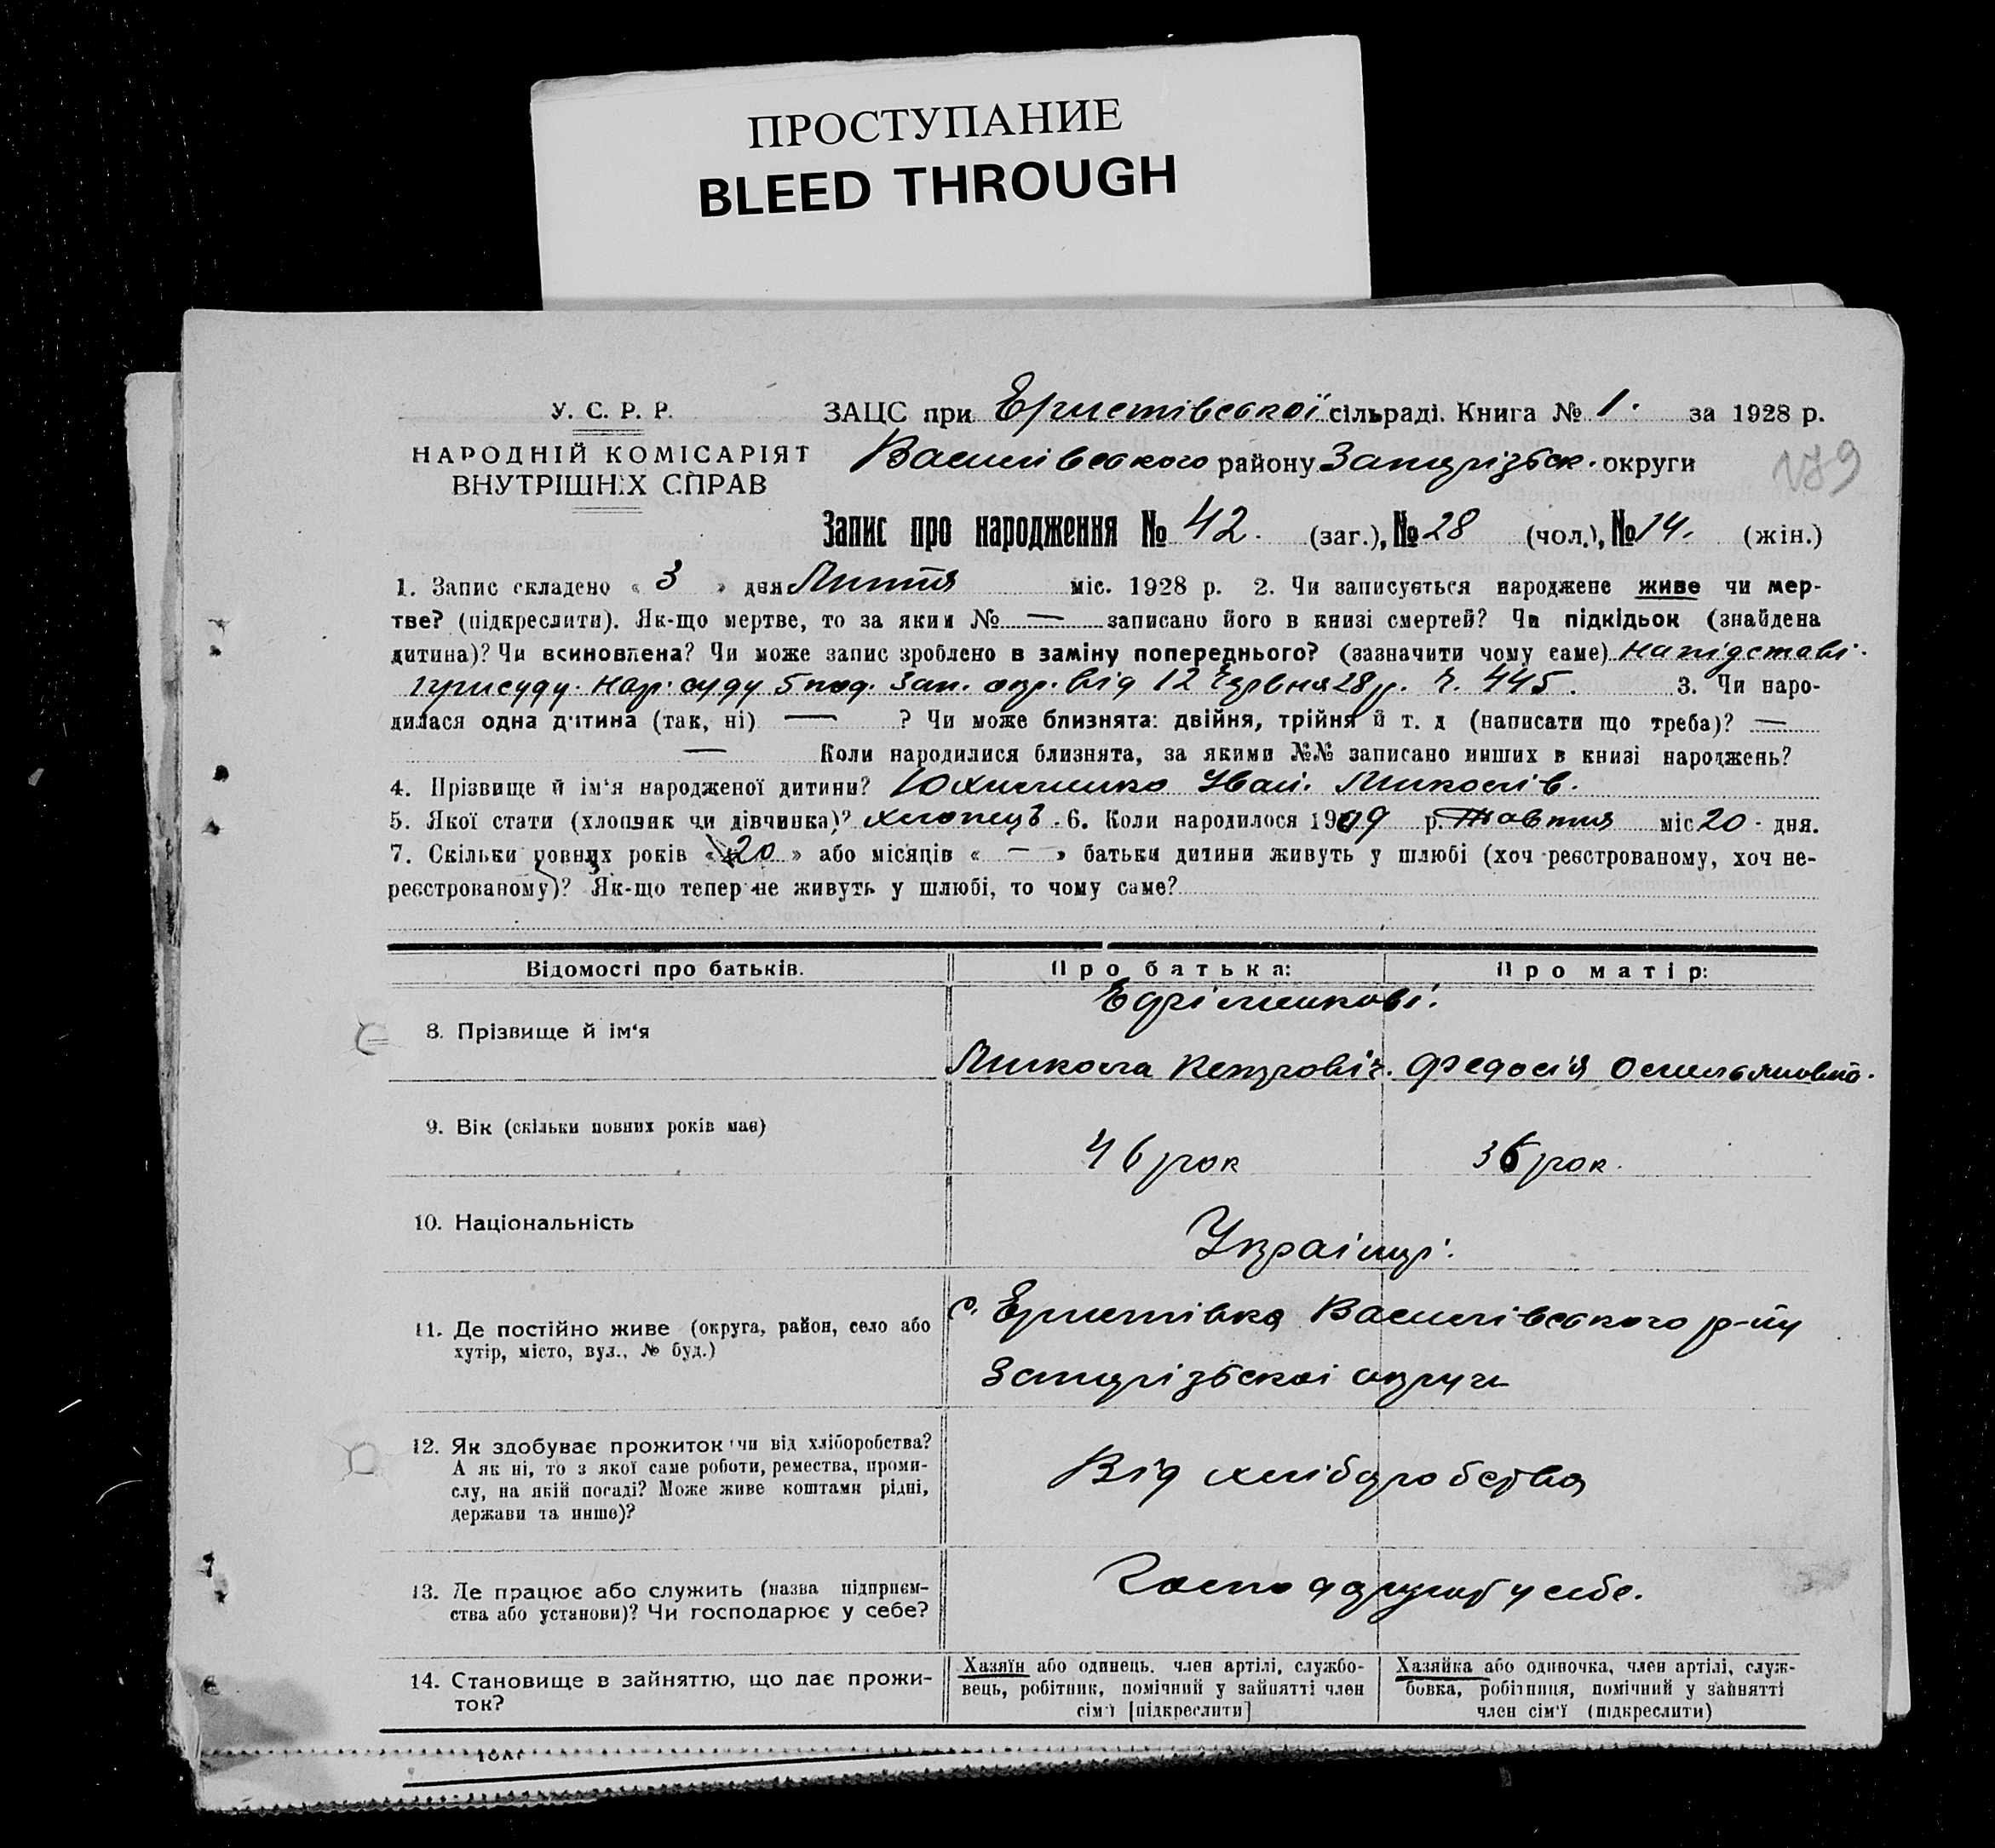 ПРОСТУПАНИЕ
BLEED THROUGH
У. С. Р. Р.
НАРОДНІЙ КОМІСАРІЯТ
ВНУТРІШНІХ СПРАВ
ЗАЦС при Ернстівської сільраді. Книга № 1. за 1928 р.
Василівського району Запорізьк. округи
179
Запис про народження № 42. (заг.), № 28 (чол.), № 14. (жін.)
1. Запис складено « 3 » дня Липня міс. 1928 р. 2. Чи записується народжене живе чи мер-
тве? (підкреслити). Як-що мертве, то за яким № — записано його в книзі смертей? Чи підкідьок (знайдена
дитина)? Чи всиновлена? Чи може запис зроблено в заміну попереднього? (зазначити чому саме) На підставі
присуду. Нар. суду 5 под. Зап. окр. від 12 Червня 28 р. Ч. 445. 3. Чи наро-
дилася одна дитина (так, ні) — ? Чи може близнята: двійня, трійня й т. д (написати що треба)? —
— Коли народилися близнята, за якими №№ записано инших в книзі народжень?
4. Прізвище й ім'я народженої дитини? Юхименко Іван. Миколів.
5. Якої статі (хлопчик чи дівчинка)? хлопець. 6. Коли народилося 1909 р. Жовтня міс 20 - дня.
7. Скільки повних років « 20 » або місяців « — » батьки дитини живуть у шлюбі (хоч реєстрованому, хоч не-
реєстрованому)? Як-що тепер не живуть у шлюбі, то чому саме?
Відомості про батьків. Про батька: Про матір:
8. Прізвище й ім'я
Микола Петрович. Федосія Омельяновна.
9. Вік (скільки повних років має)
46 рок 36 рок.
10. Національність
Українці.
11. Де постійно живе (округа, район, село або
хутір, місто, вул., № буд.)
с. Ернстівка Василівського р-ну
Запорізької округи
12. Як здобуває прожиток чи від хліборобства?
А як ні, то з якої саме роботи, ремества, проми-
слу, на якій посаді? Може живе коштами рідні,
держави та инше)?
Від хліборобства
13. Де працює або служить (назва підприєм-
ства або установи)? Чи господарює у себе?
Господарюют у себе.
14. Становище в зайняттю, що дає прожи-
ток?
Хазяїн або одинець. член артілі, службо-
вець, робітник, помічний у зайнятті член
сім'ї [підкреслити]
Хазяйка або одиночка, член артілі, служ-
бовка, робітниця, помічний у зайнятті
член сім'ї (підкреслити)